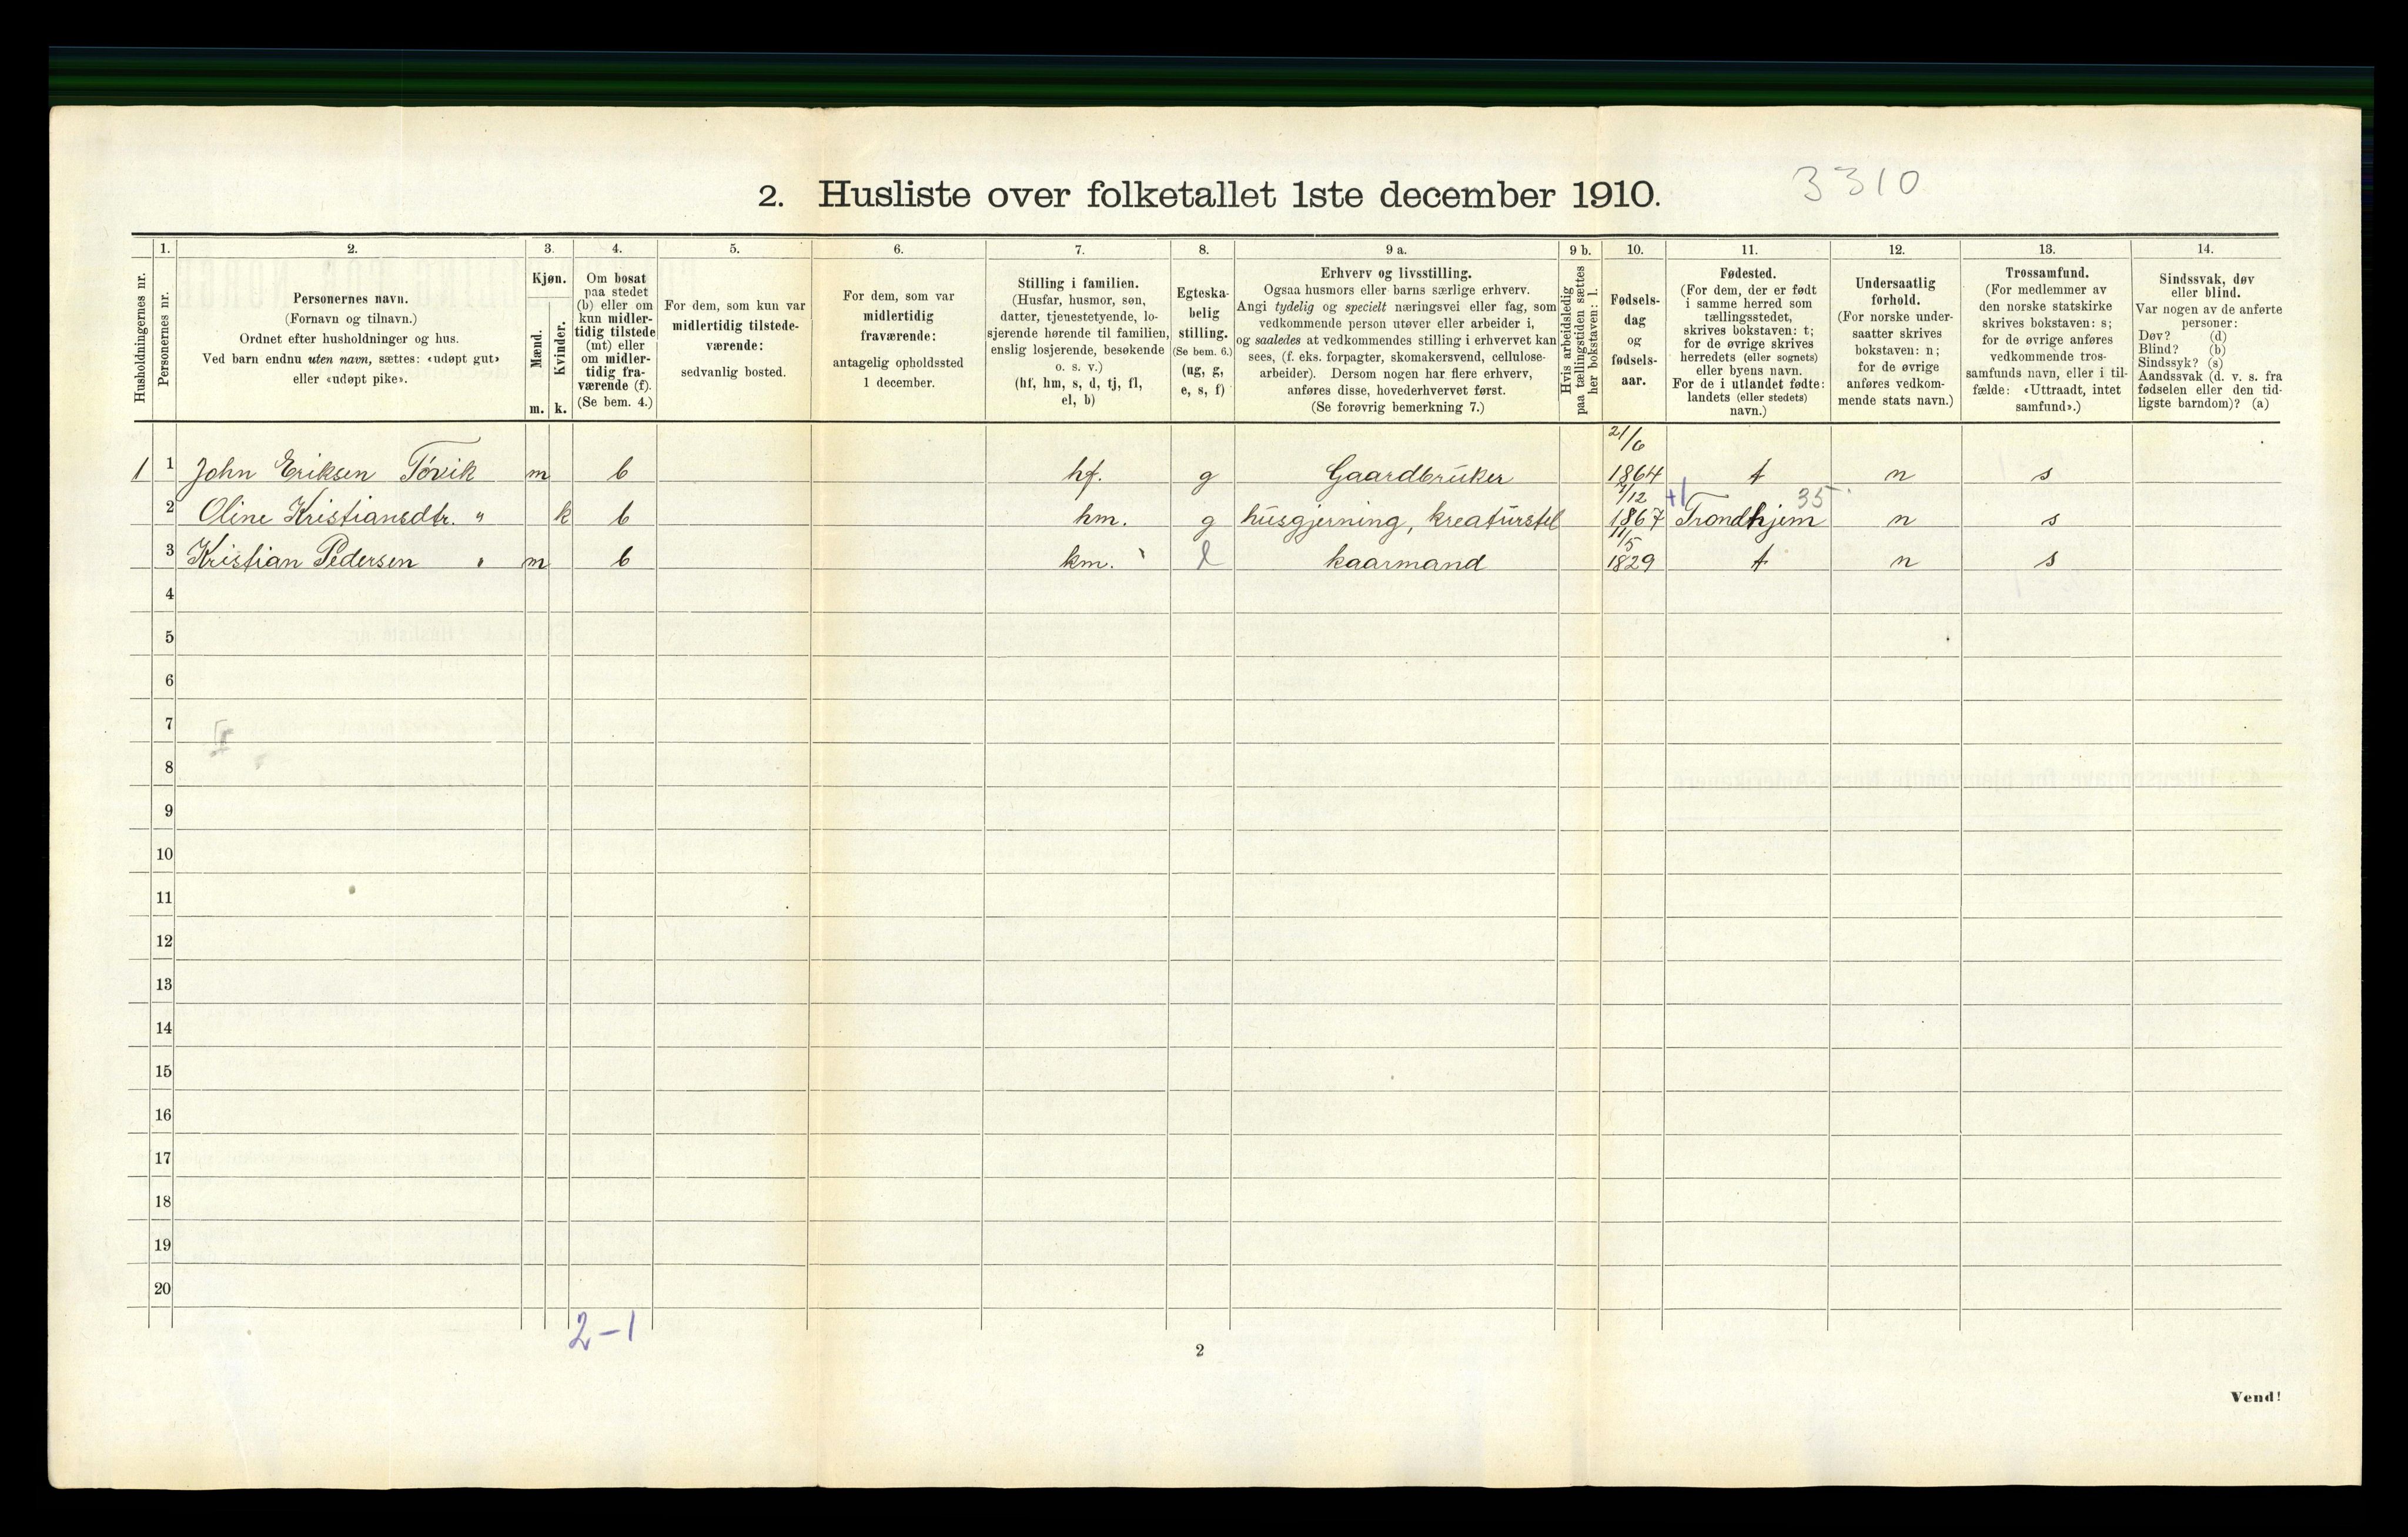 3310
2. Husliste over folketallet 1ste december 1910.
Husholdningernes nr.
1.
Personernes nr.
2.
Personernes navn.
(Fornavn og tilnavn.)
Ordnet efter husholdninger og hus.
Ved barn endnu uten navn, sættes: «udøpt gut»
eller «udøpt pike».
3.
Kjøn.
Mænd.
Kvinder.
m. k.
4.
Om bosat
paa stedet
(b) eller om
kun midler-
tidig tilstede
(mt) eller
om midler-
tidig fra-
værende (f).
(Se bem. 4.)
5.
For dem, som kun var
midlertidig tilstede-
værende:
sedvanlig bosted.
6.
For dem, som var
midlertidig
fraværende:
antagelig opholdssted
1 december.
7.
Stilling i familien.
(Husfar, husmor, søn,
datter, tjenestetyende, lo-
sjerende hørende til familien,
enslig losjerende, besøkende
o. s. v.)
(hf, hm, s, d, tj, fl,
el, b)
8.
Egteska-
belig
stilling.
(Se bem. 6.)
(ug, g,
e, s, f)
9 a.
Erhverv og livsstilling.
Ogsaa husmors eller barns særlige erhverv.
Angi tydelig og specielt næringsvei eller fag, som
vedkommende person utøver eller arbeider i,
og saaledes at vedkommendes stilling i erhvervet kan
sees, (f. eks. forpagter, skomakersvend, cellulose-
arbeider). Dersom nogen har flere erhverv,
anføres disse, hovederhvervet først.
(Se forøvrig bemerkning 7.)
9 b.
Hvis arbeidsledig
paa tællingstiden sættes
her bokstaven: l.
10.
Fødsels-
dag
og
fødsels-
aar.
11.
Fødested.
(For dem, der er født
i samme herred som
tællingsstedet,
skrives bokstaven: t;
for de øvrige skrives
herredets (eller sognets)
eller byens navn.
For de i utlandet fødte:
landets (eller stedets)
navn.)
12.
Undersaatlig
forhold.
(For norske under-
saatter skrives
bokstaven: n;
for de øvrige
anføres vedkom-
mende stats navn.)
13.
Trossamfund.
(For medlemmer av
den norske statskirke
skrives bokstaven: s;
for de øvrige anføres
vedkommende tros-
samfunds navn, eller i til-
fælde: «Uttraadt, intet
samfund».)
14.
Sindssvak, døv
eller blind.
Var nogen av de anførte
personer:
Døv? (d)
Blind? (b)
Sindssyk? (s)
Aandssvak (d. v. s. fra
fødselen eller den tid-
ligste barndom)? (a)
1 1 John Eriksen Tøvik m b hf. g Gaardbruker 21/6 1864 t n s
2 Oline Kristiansdtr. " k b hm. g husgjerning, kreaturstel 4/12 1867 +1 Trondhjem 35 n s
3 Kristian Pedersen " m b km. e kaarmand 11/5 1829 t n s
4
5
6
7
8
9
10
11
12
13
14
15
16
17
18
19
20
2-1
2
Vend!